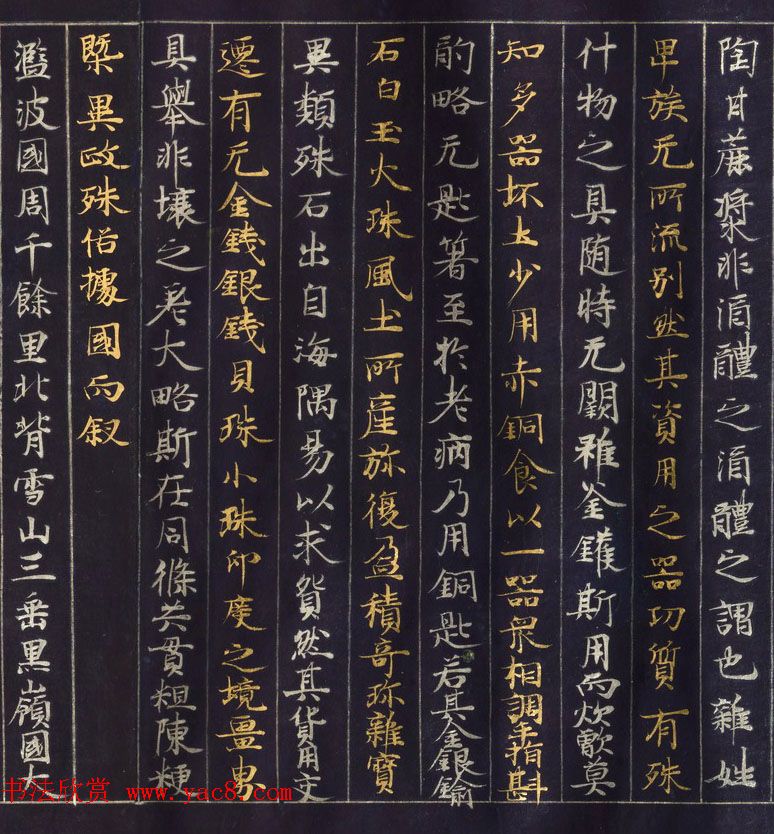 陶甘蔗漿非酒醴之酒醴之謂也雜姓
卑族无所流別然其資用之器功質有殊
什物之具随時无闕雖釜鑊斯用而炊甑莫
知多器坏土少用赤銅食以一器衆相調手指斟
酌略无匙箸至於老病乃用銅匙若其金銀鍮
石白玉火珠風土所産弥復盈積奇珎雜寶
異類殊石出自海隅易以求貿然其貨用交
遷有无金錢銀錢貝珠小珠印度之境畺界
具舉非壤之差大略斯在同條共貫粗陳梗
槩異政殊俗據國而叙
濫波國周千餘里北背雪山三垂黒嶺國大
书法欣赏 www.yac8.com